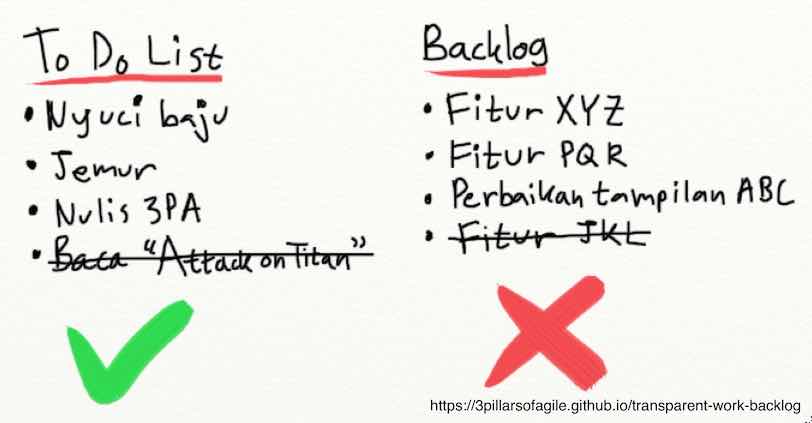 To Do List
• Nyuci baju
• Jemur
• Nulis 3PA
• Baca "Attack on Titan"
Backlog
• Fitur XYZ
• Fitur PQR
• Perbaikan tampilan ABC
• Fitur JKL
https://3pillarsofagile.github.io/transparent-work-backlog